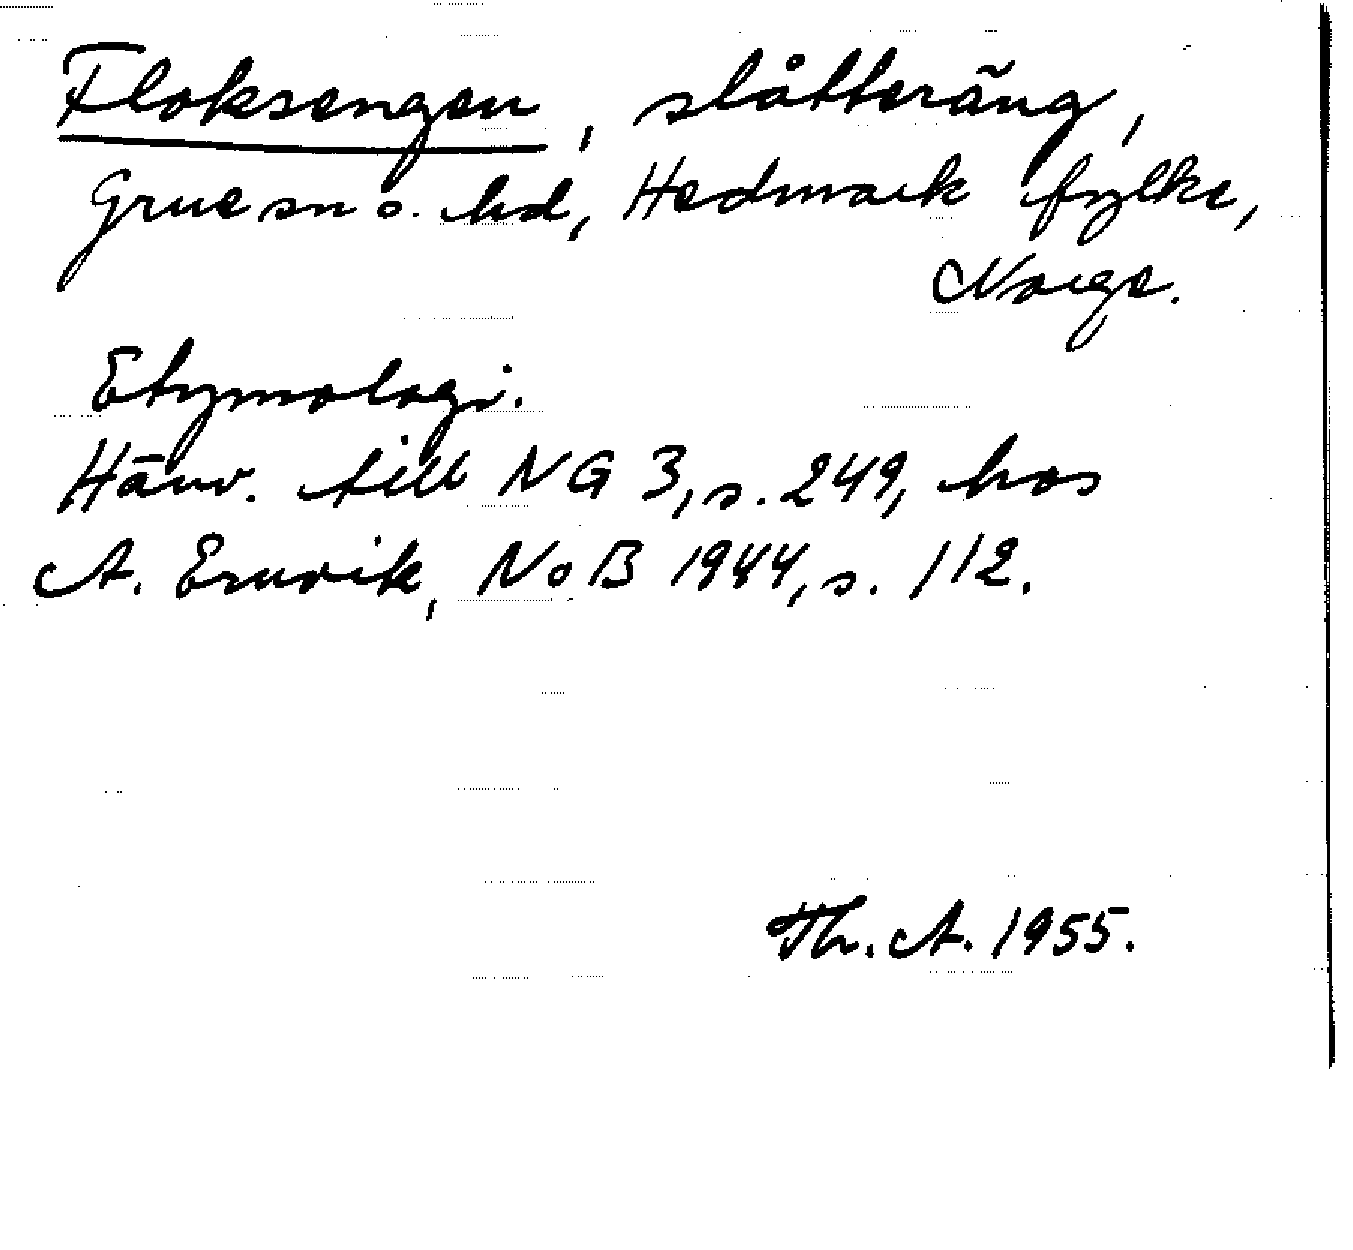 Floksengen, slåtteräng,
Grue sn o. hd, Hedmark fylke,
Norge.
Etymologi.
Hänv. till NG 3, s. 249, hos
A. Ernvik, NoB 1944, s. 112.
Th. A. 1955.